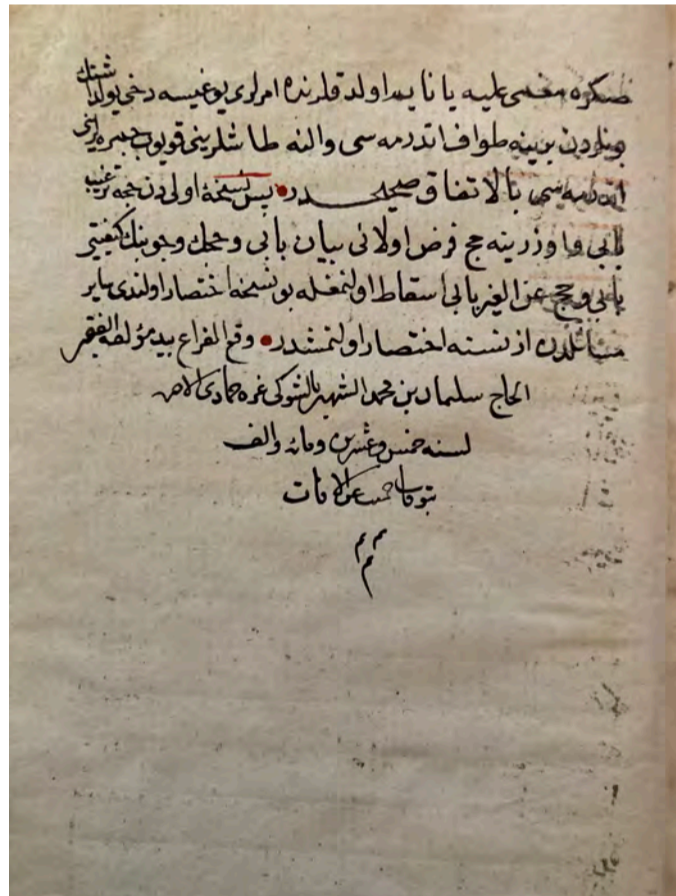 صكره مغمى عليه يا نايم اولدقلرنده امرلرى يوغيسه دخى يولداشنك
بونلردن برينه طواف اتدرمه سى والنه طاشلرينى قويوب جمره يه اتى
اتدرمه سى بالاتفاق صحيحدر پس نسخهٔ اولى دن حجه ترغيب
بابى و اوزرينه حج فرض اولانى بيان بابى و حجك وجوبنك كيفيتى
بابى و حج عن الغير بابى اسقاط اولنمغله بو نسخه اختصار اولندى ساير
مسائلدن از نسنه اختصار اولنمشدر وقع الفراغ بيد مؤلفه الفقير
الحاج سليمان بن محمد الشهير بالشوكى غره جمادى الاخر
لسنه خمس وعشرين ومائه والف
بتوقات حميت عن الافات
م م م